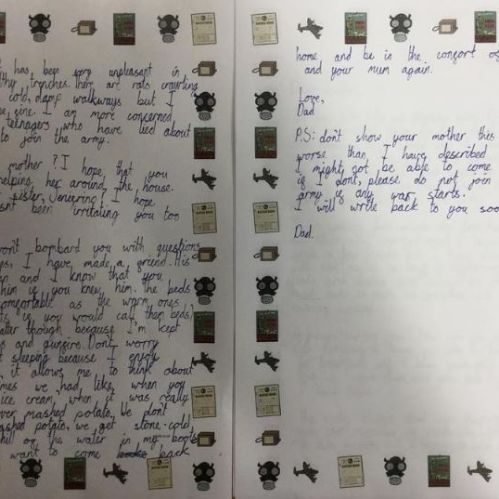 t has been very unpleasant in
thy trenches. There are rats crawling
cold, damp walkways but I
e fine. I am more concerned
teenagers who have lied about
to join the army.
mother? I hope that you
helping her around the house.
sister, Jennering I hope
sn't been irritating you too
on't bombard you with questions
es, I have made a friend. His
en and I know that you
him if you knew him. The beds
omfortable as the warm ones
is if you would call them beds)
atter though because I'm kept
s and gunfire. Don't worry
t sleeping because I enjoy
it allows me to think about
mes we had, like, when you
ice cream, when it was really
ver mashed potato. We don't
ashed potato, we get stone-cold
hill of the water in my boots
want to come back
home and be in the comfort of
and your mum again.
Love,
Dad
P.S: don't show your mother this
worse than I have described
I might not be able to come
if I don't, please do not join
army if any war starts.
I will write back to you soo
Dad.